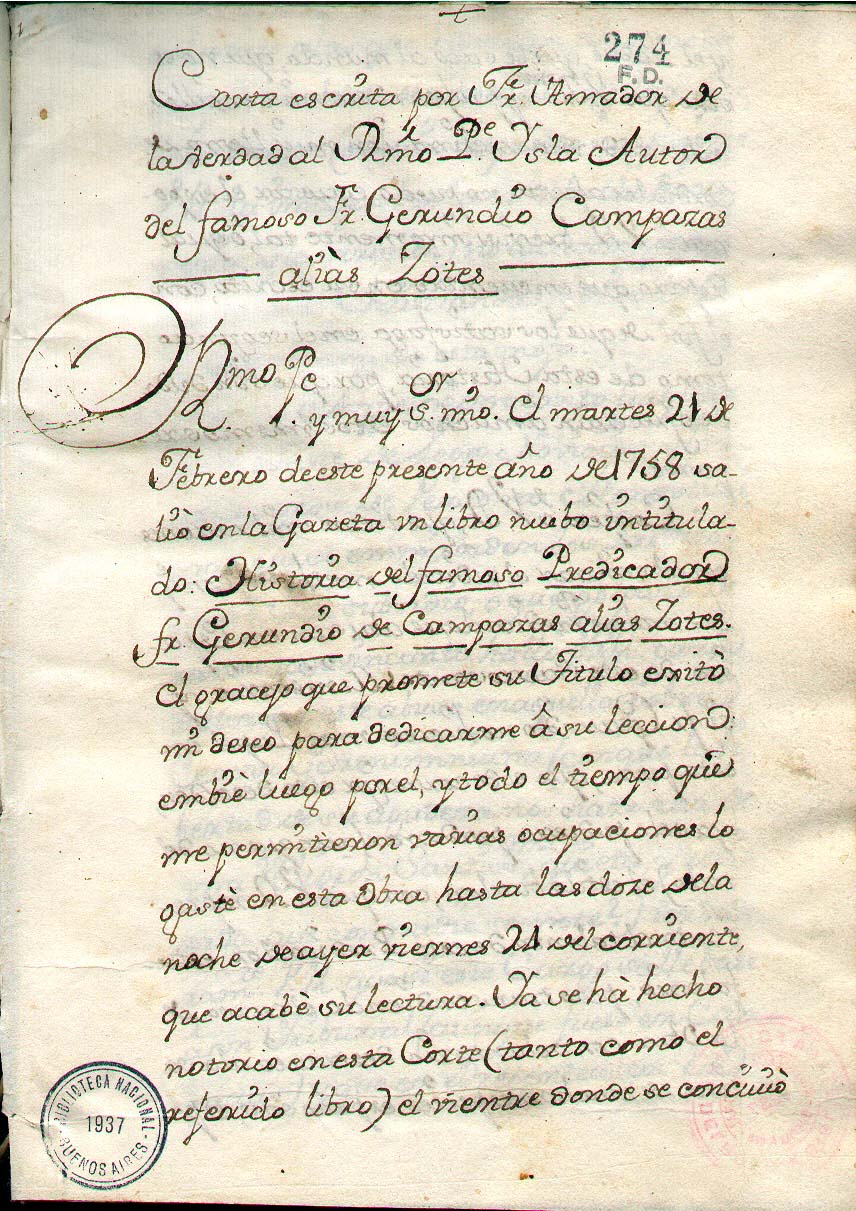 1
274
F.D.
Carta escrita por Fr. Amador de
la Verdad al Rmó Pe. Ysla Autor
del famoso Fr. Gerundio Campazas
aliàs Zotes
Rmo Pe. Or
y muy S. mio. El martes 21 de
Febrero de este presente año de 1758 sa-
liò en la Gazeta vn libro nuebo intitula-
do: Historia del famoso Predicador
fr. Gerundio de Campazas alias Zotes.
El gracejo que promete su Titulo exitò
mi deseo para dedicarme â su leccion:
embiè luego por el, y todo el tiempo que
me permitieron varias ocupaciones lo
gastè en esta Obra hasta las doze de la
noche de ayer viernes 24 del corriente,
que acabè su lectura. Ya se hà hecho
notorio en esta Corte (tanto como el
referido libro) el vientre donde se conciviò
BIBLIOTECA NACIONAL
1937
BUENOS AIRES